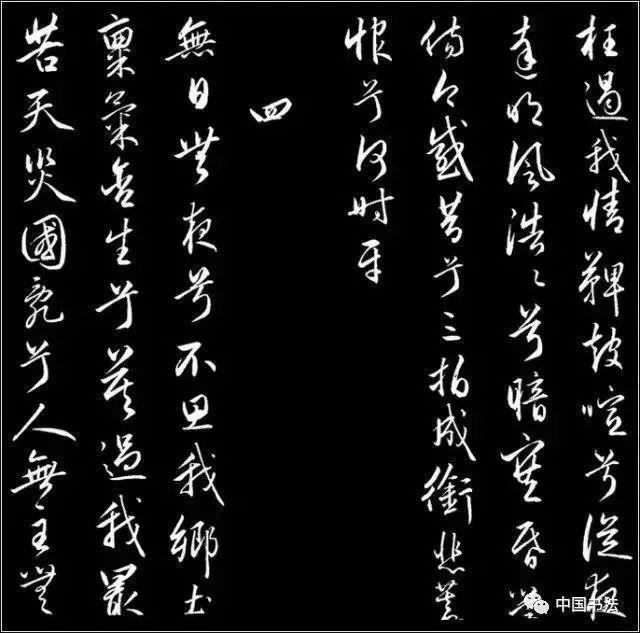 枉遏我情鞞鼓喧兮從夜
達明風浩〻兮暗塞昏營
傷今感昔兮三拍成銜悲蓄
恨兮何時平
四
無日無夜兮不思我鄉土
稟氣含生兮莫過我最
苦天災國亂兮人無主無
中国书法